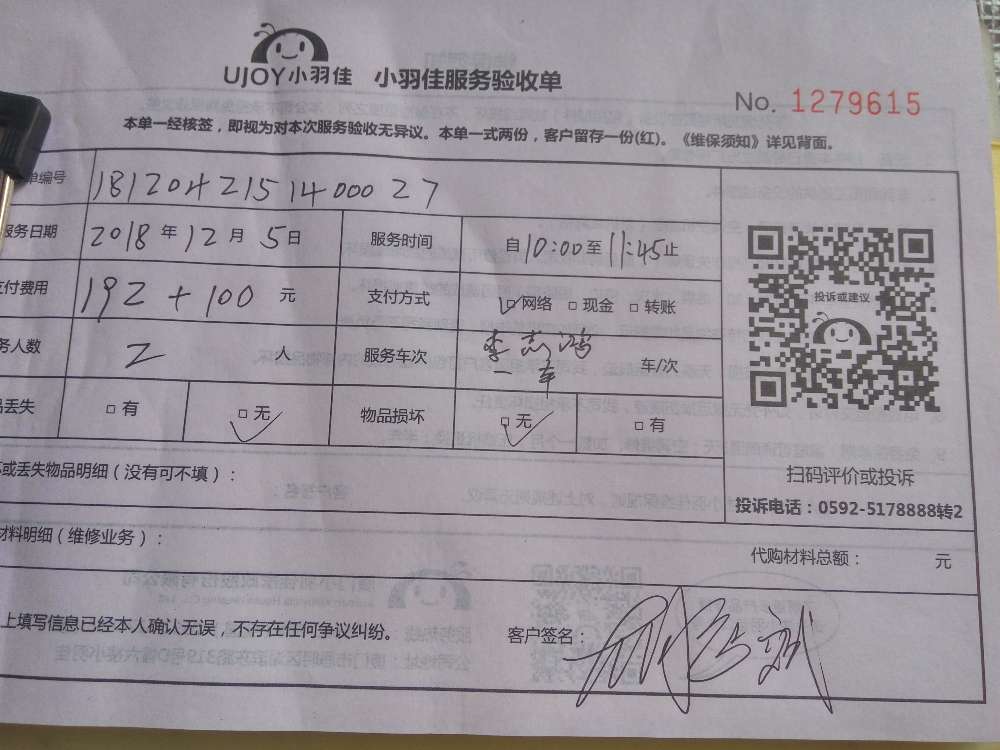 UJOY小羽佳 小羽佳服务验收单
No. 1279615
本单一经核签，即视为对本次服务验收无异议。本单一式两份，客户留存一份(红)。《维保须知》详见背面。
单编号 18120421514000 27
服务日期 2018年12月5日 服务时间 自10:00至11:45止
支付费用 192+100 元 支付方式 ☑网络 □现金 □转账
务人数 2 人 服务车次 一车 车/次
品丢失 □有 ☑无 物品损坏 ☑无 □有
投诉或建议
扫码评价或投诉
投诉电话：0592-5178888转2
坏或丢失物品明细（没有可不填）：
材料明细（维修业务）：
代购材料总额： 元
上填写信息已经本人确认无误，不存在任何争议纠纷。 客户签名：